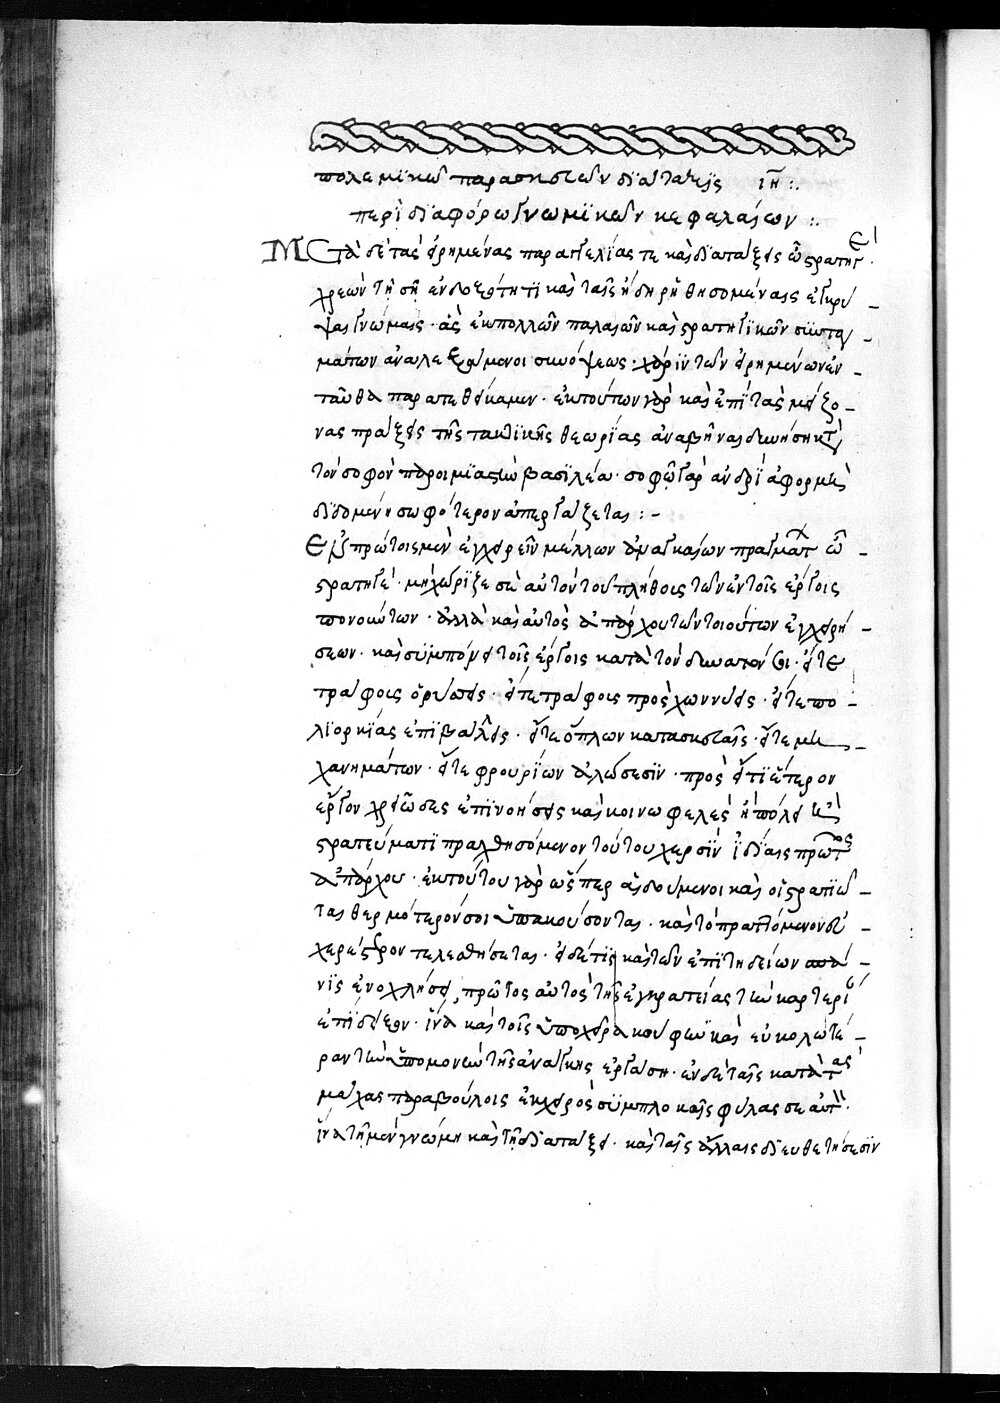 πολεμϊκῶν παρασκευῶν δϊάταξις ιη :.
περὶ δϊαφόρων γνωμϊκῶν κεφαλαίων :.
Μετὰ δὲ τὰς εἰρημένας παραγγελίας τε καὶ δϊατάξεις ὦ στρατηγέ
χρεὼν τῆ σῆ ἐνδοξότητϊ καὶ ταῖς ἤδη ῥηθησομέναις ἐγκύ-
ψαι γνώμαις · ἃς ἐκ πολλῶν παλαιῶν καὶ στρατηγϊκῶν συνταγ-
μάτων ἀναλεξάμενοι συνόψεως χάρϊν τῶν εἰρημένων ἐν-
ταῦθα παρατεθείκαμεν · ἐκ τούτων γὰρ καὶ ἐπῒ τὰς μείζο-
νας πράξεις τῆς τακτϊκῆς θεωρίας ἀναβῆναι δυνήση κατὰ
τὸν σοφὸν παροιμϊαστὴν βασϊλέα · σοφῶ γὰρ ἀνδρῒ ἀφορμὴ
δϊδομένη σωφότερον ἀπεργάζεται : -
Ἐν πρώτοις μὲν ἐγχειρεῖν μέλλων ἀναγκαίων πραγμάτων ὦ
στρατηγέ · μὴ χώρϊζε σεαυτὸν τοῦ πλήθους τῶν ἐν τοῖς ἔργοις
πονούντων · ἀλλὰ καὶ αὐτὸς ἀπάρχου τῶν τοιούτων ἐγχειρή-
σεων · καὶ συμπόνει τοῖς ἔργοις κατὰ τὸν δυνατόν σοι · εἴτε
τράφοις ὀρύσσεις · εἴτε τράφοις προσχωννύεις · εἴτε πο-
λϊορκίας ἐπϊβάλλεις · εἴτε ὅπλων κατασκευαῖς · εἴτε μη-
χανημάτων · εἴτε φρουρίων ἁλώσεσϊν · πρὸς εἴ τϊ ἕτερον
ἔργον χρειῶδες ἐπϊνοήσεις καὶ κοινωφελὲς ἢ πόλει ἢ
στρατεύματϊ πραχθησόμενον τούτου χερσῒν ἰδίαις πρῶτος
ἀπάρχου · ἐκ τούτου γὰρ ὥσπερ αἰδούμενοι καὶ οἱ στρατϊῶ-
ται θερμότερόν σοι ὑπακούσονται · καὶ τὸ πραττόμενον εὐ-
χερέστερον τελεσθήσεται · εἰ δέ τις καὶ τῶν ἐπϊτηδείων σπά-
νϊς ἐνοχλήσει, πρῶτος αὐτὸς τῆς ἐγκρατείας τὴν καρτερίαν
ἐπϊδείξον · ἵνα καὶ τοῖς ὑποχείρα κουφϊνὴ καὶ εὐκολωτέ-
ραν τὴν ὑπομονὴν τῆς ἀνάγκης ἐργάση · ἐν δὲ ταῖς κατὰ τὰς
μάχας παραβούλοις ἐκ χειρὸς συμπλοκαῖς φύλασσε αὐτὸν ·
ἵνα τῆ μὲν γνώμη καὶ τῆ δϊατάξει · καὶ ταῖς ἄλλαις δϊευθετήσεσϊν